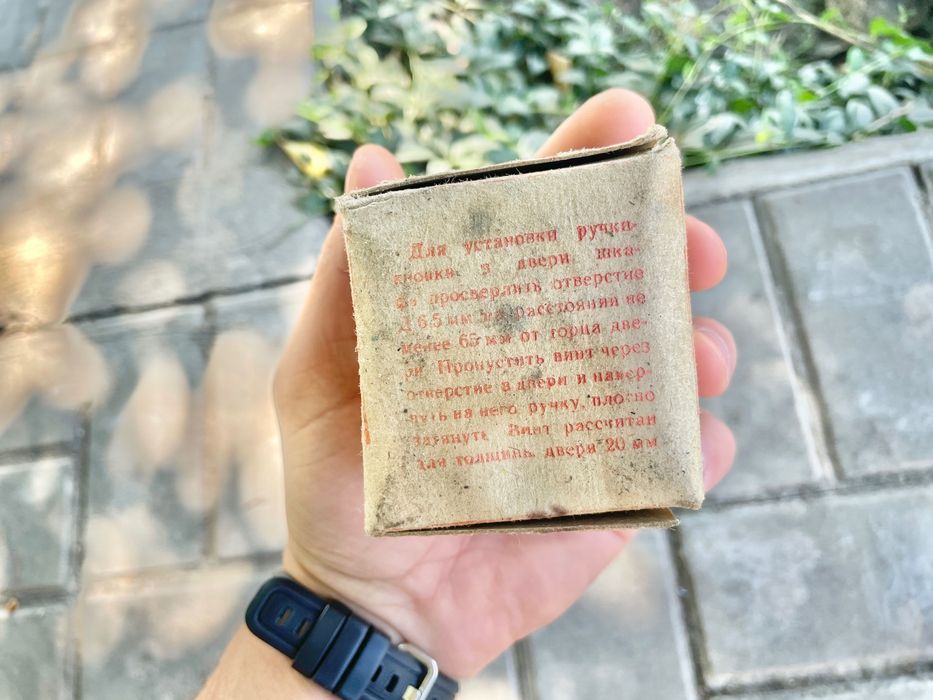 Для установки ручки-
кнопки в двери шка-
фа просверлить отверстие
6,5 мм на расстоянии не
менее 65 мм от торца две-
ри. Пропустить винт через
отверстие в двери и навер-
нуть на него ручку, плотно
затянуть. Винт рассчитан
для толщины двери 20 мм